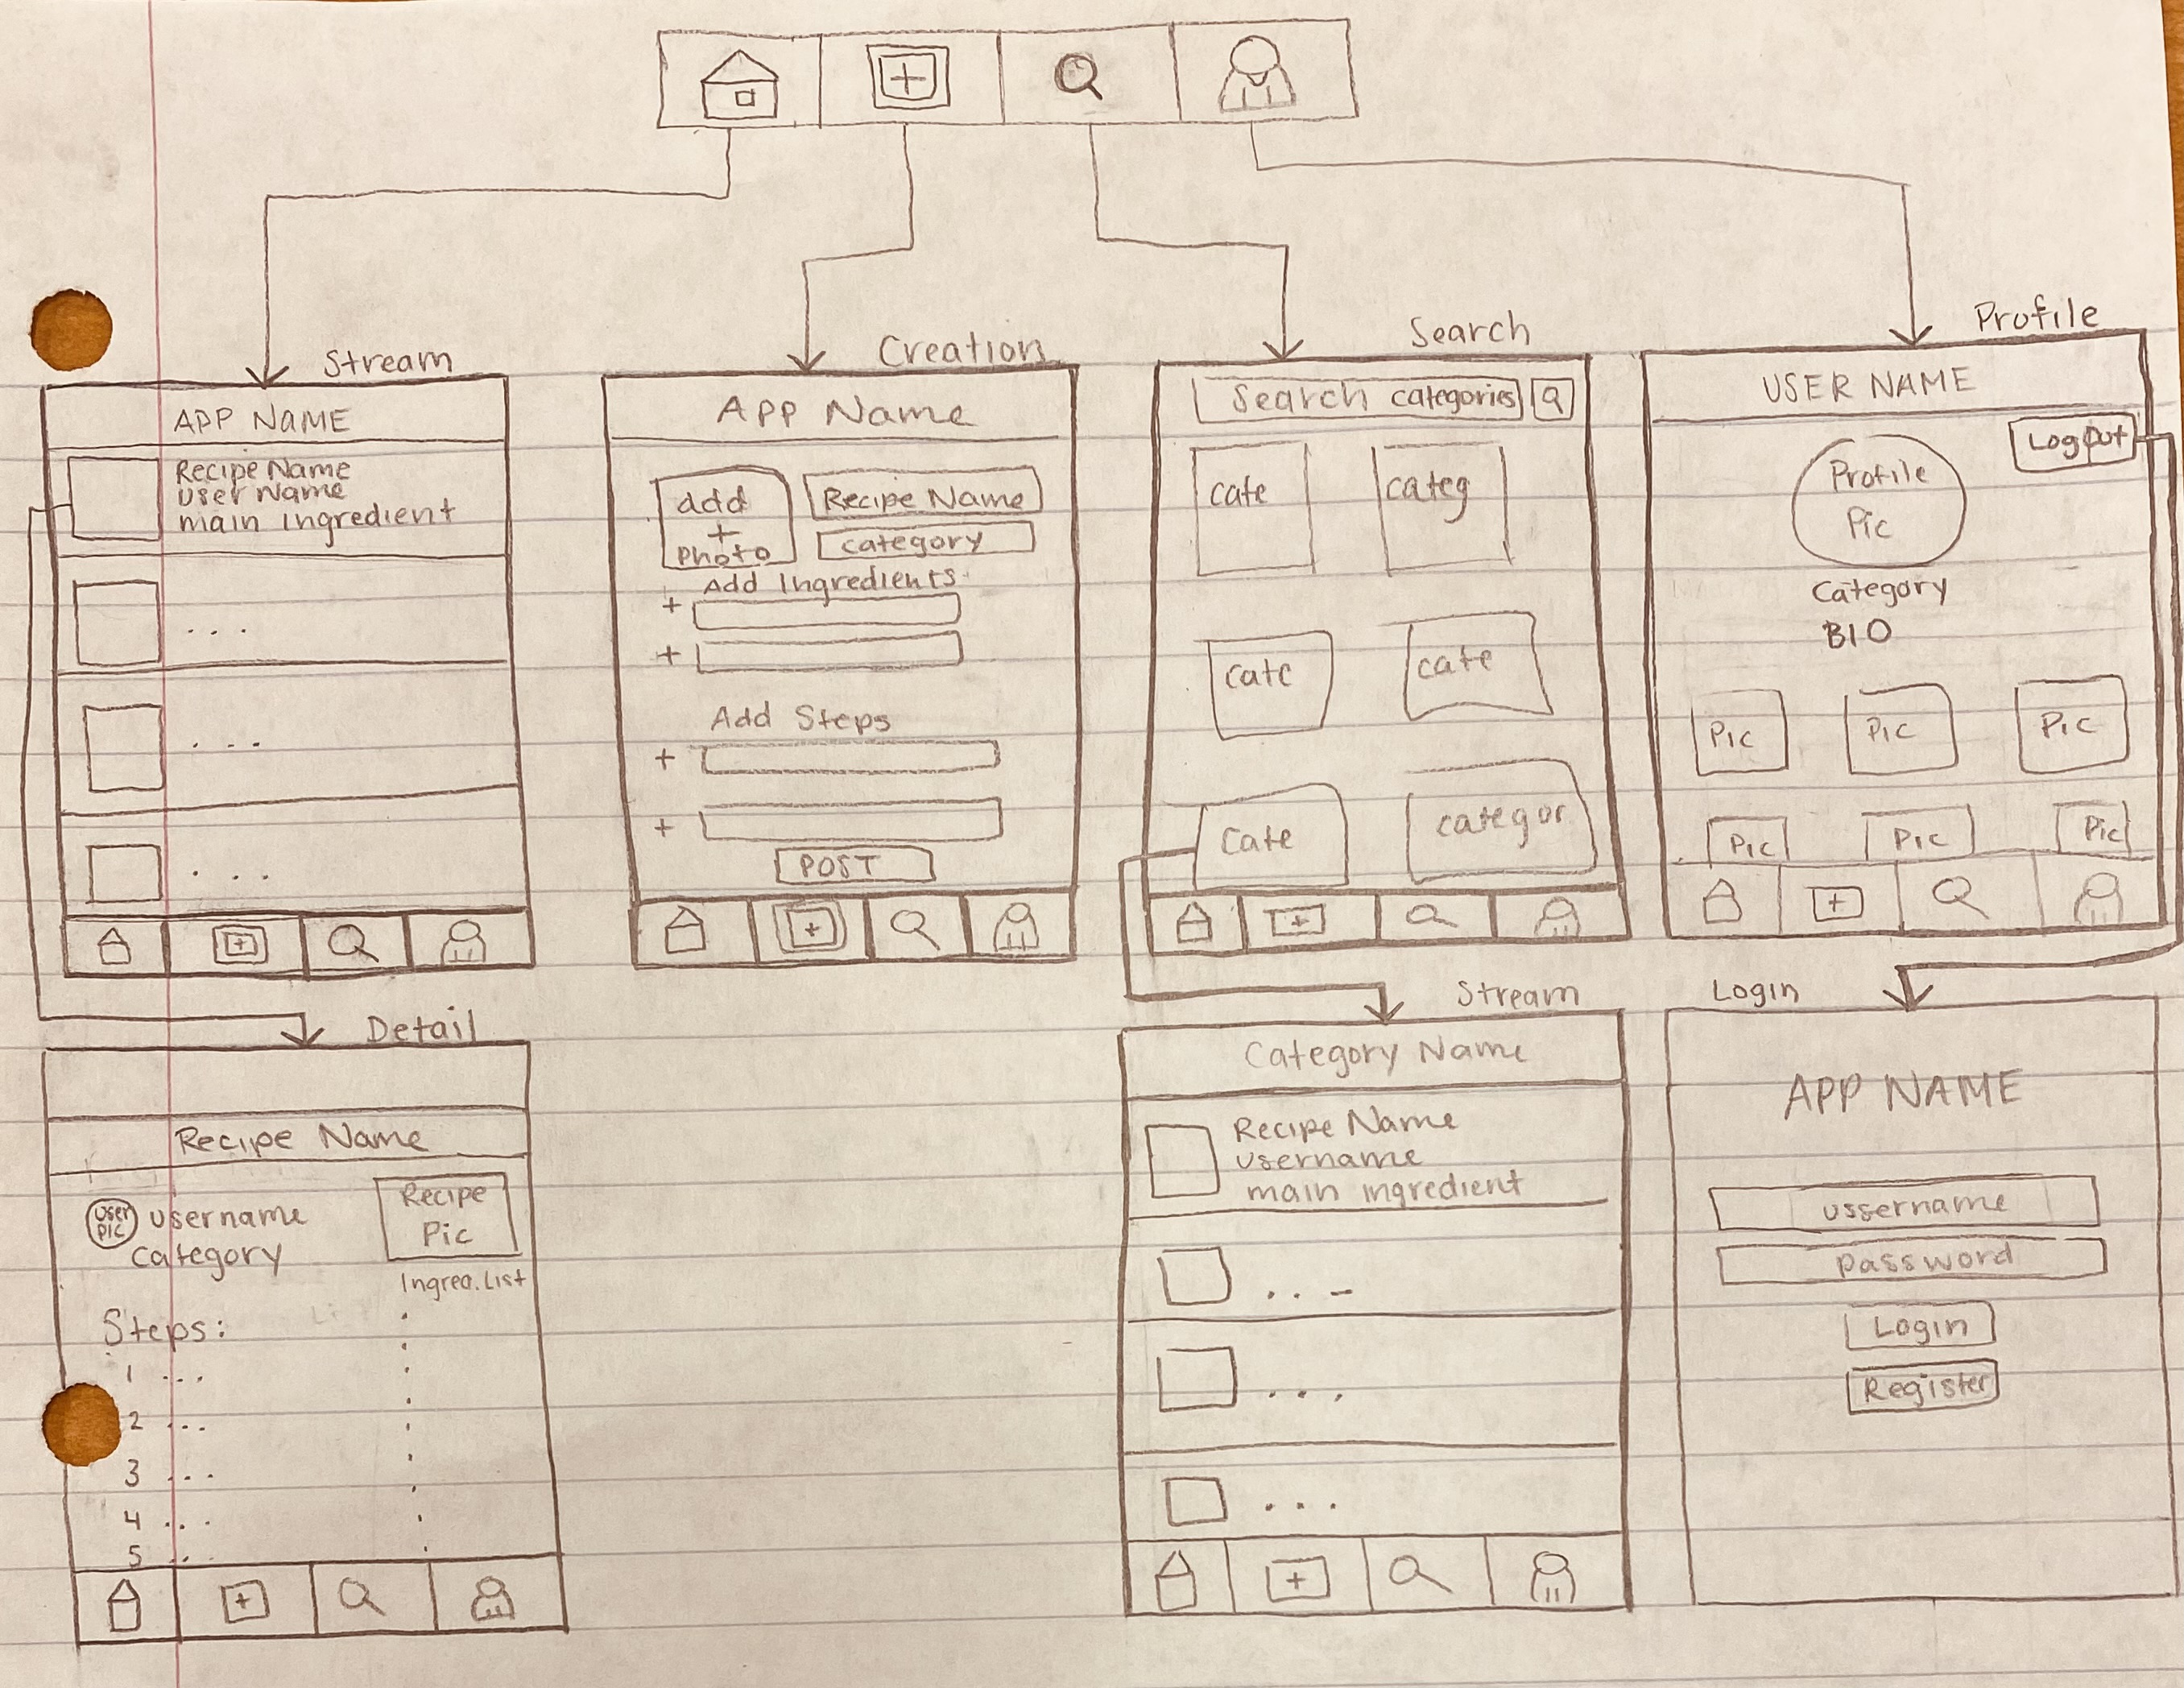 Stream
APP NAME
Recipe Name
user Name
main ingredient
...
...
...
Creation
App Name
add
+
Photo
Recipe Name
category
Add Ingredients
+
+
Add Steps
+
+
POST
Search
Search categories
cate
categ
cate
cate
cate
categor
Profile
USER NAME
Logout
Profile
Pic
Category
BIO
Pic
Pic
Pic
Pic
Pic
Pic
Detail
Recipe Name
User
Pic
username
category
Recipe
Pic
Ingred. List
Steps:
1 ...
2 ...
3 ...
4 ...
5 ...
Stream
Category Name
Recipe Name
username
main ingredient
...
...
...
Login
APP NAME
ussername
password
Login
Register